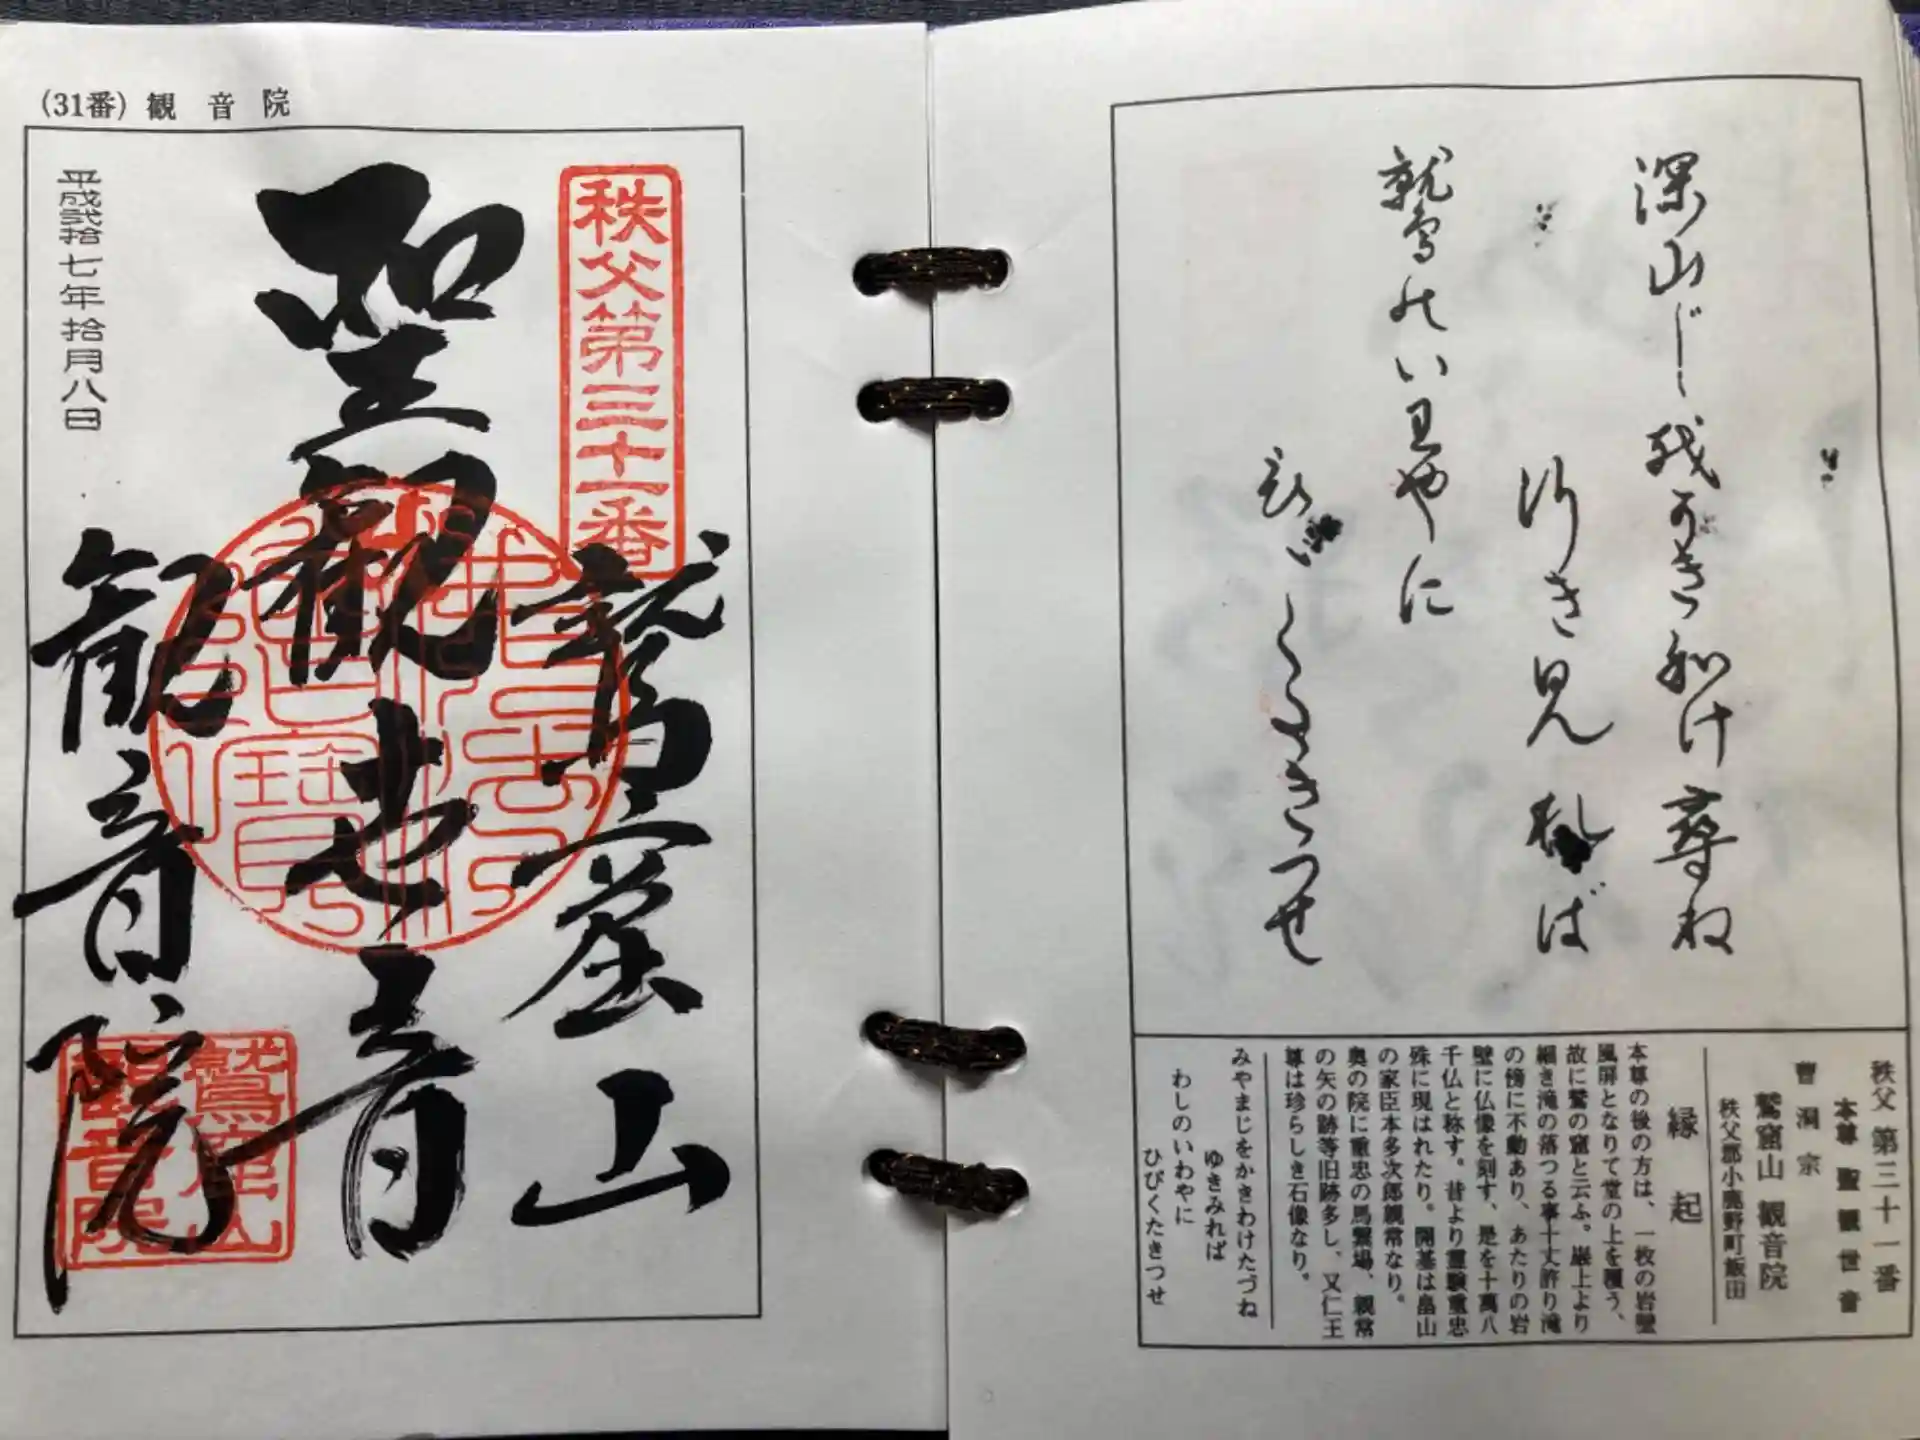 (31番) 観音院
秩父第三十一番
鷲窟山
聖観世音
観音院
平成弐拾七年拾月八日
鷲窟山
観音院
深山じを
かき和け尋ね
行き見れば
鷲のいわやに
ひびくたきつせ
秩父第三十一番
本尊 聖観世音
曹洞宗
鷲窟山 観音院
秩父郡小鹿野町飯田
縁起
本尊の後の方は、一枚の岩壁
風屏となりて堂の上を覆う、
故に鷲の窟と云ふ。巌上より
細き滝の落つる事十丈許り滝
の傍に不動あり、あたりの岩
壁に仏像を刻す、是を十萬八
千仏と称す。昔より霊験重忠
殊に現はれたり。開基は畠山
の家臣本多次郎親常なり。
奥の院に重忠の馬繋場、親常
の矢の跡等旧跡多し、又仁王
尊は珍らしき石像なり。
みやまじをかきわけたづね
ゆきみれば
わしのいわやに
ひびくたきつせ